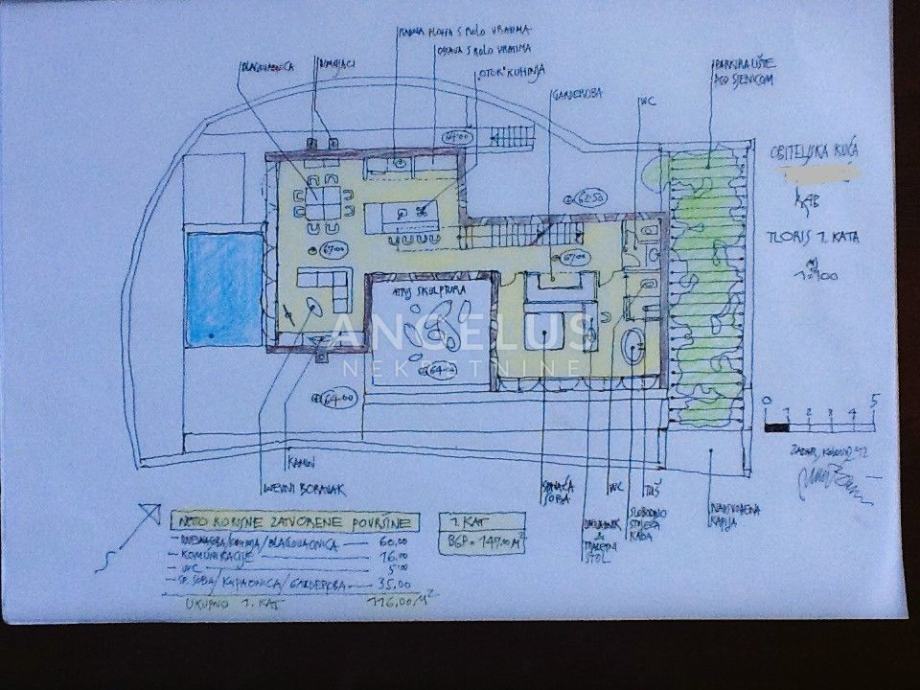 RADNA PLOHA S ROLO VRATIMA
OPRAVA S ROLO VRATIMA
BLAGOVAONICA
DIMNJACI
"OTOK" KUHINJA
GARDEROBA
WC
PARKIRALIŠTE
POD SJENICOM
OBITELJSKA KUĆA
RAB
TLORIS 1. KATA
M
1:100
64.00
62.50
67.00
67.00
ATRIJ SKULPTURA
ANGELUS
NEKRETNINE
64.00
64.00
0 1 2 3 4 5
ZADAR, KOLOVOZ '12
KAMIN
DNEVNI BORAVAK
SPAVAĆA
SOBA
&
TOALETNI
STOL
WC
SLOBODNO
STOJEĆA
KADA
TUŠ
NATKRIVENA
S
NETO KORISNE ZATVORENE POVRŠINE
- DNEVNA SOBA/KUHINJA/BLAGOVAONICA — 60,00
- KOMUNIKACIJE — 16,00
- WC — 5,00
- SP. SOBA/KUPAONICA/GARDEROBA — 35,00
UKUPNO 1. KAT 116,00 M²
1. KAT
BGP = 149,00 M²